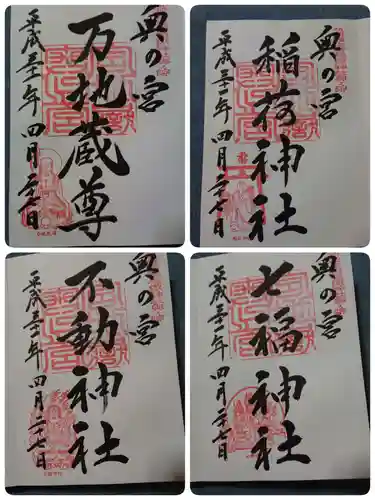 奥の宮
万地蔵尊
平成三十一年四月二十七日
奥の宮
稲荷神社
平成三十一年四月二十七日
奥の宮
不動神社
平成三十一年四月二十七日
奥の宮
七福神社
平成三十一年四月二十七日